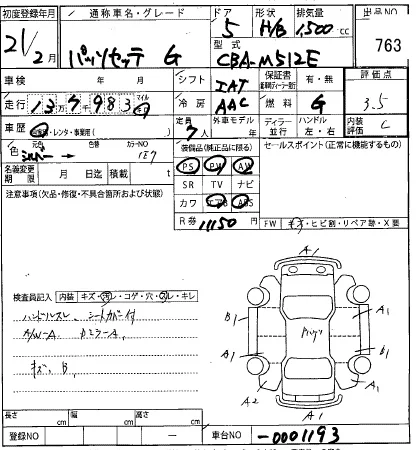 初度登録年月 通称車名・グレード ドア 形状 排気量 出品NO
21/2月 パッソセッテ G 5 H/B 1,500cc 763
型式 CBA-M512E
車検 年 月 シフト IAT 保証書 有・無 評価点
走行 冷房 AAC 燃料 G 3.5
車歴 レンタ・事業用( ) 定員 7人 外車モデル 年 ディーラー 並行 ハンドル 左・右 内装評価 C
色 元色 シルバー 色替 カラーNO 1E7 装備品(純正品に限る) セールスポイント(正常に機能するもの)
PS PW AW
名義変更期限 月 日迄 積載 t SR TV ナビ
注意事項(欠品・修復・不具合箇所および状態) カワ エアB ABS
R券 11150円 FW キズ・ヒビ割・リペア跡・X要
A1
検査員記入 内装 キズ・汚レ・コゲ・穴・スレ・キレ
ハンドルスレ シートカバー付
A/W-A
キズ、B
B1 A1
A1 B1
A2 A1
A1
長さ cm 幅 cm 高さ cm
登録NO — 車台NO -0001193